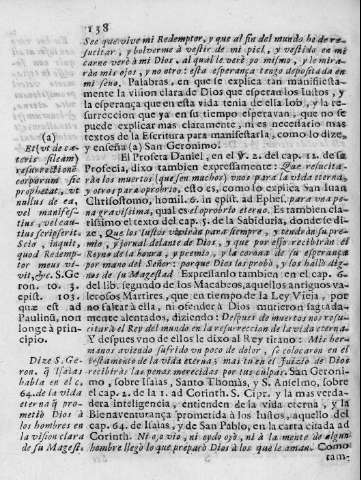 138
See que vive mi Redemptor, y que al fin del mundo he de re-
sucitar, y bolverme à vestir de mi piel, y vestido en mi
carne verè à mi Dios, al qual le verè yo mismo, y le mira-
ràn mis ojos, y no otro: esta esperança tengo depositada en
mi seno. Palabras, en que se explica tan manifiesta-
mente la vision clara de Dios que esperan los Iustos, y
la esperança que en esta vida tenia de ella Iob, y la re-
surreccion que ya en su tiempo esperavan, que no se
puede explicar mas claramente, ni es necesario mas
textos de la Escritura para manifestarla, como lo dize,
y enseña (a) San Geronimo.
El Profeta Daniel, en el ℣. 2. del cap. 12. de su
Profecia, dixo tambien expressamente: Que resucita-
ràn los muertos (que essen muchos) unos para la vida eterna,
y otros para oprobrio, esto es, como lo explica San Iuan
Chrisostomo, homil. 6. in epist. ad Ephes. para una pe-
na gravissima, qual es el oprobrio eterno. Es tambien cla-
rissimo el text. del cap. 5. de la Sabiduria, donde se di-
ze, Que los Iustos viviràn para siempre, y tendràn su pre-
mio, y jornal delante de Dios, y que por esso recibiràn el
Reyno de la honra, y premio, y la corona de su esperança
por mano del Señor: porque Dios les probò, y los hallò dig-
nos de su Magestad Expressanlo tambien en el cap. 6.
del lib. segundo de los Macabeos, aquellos antiguos va-
lerosos Martires, que en tiempo de la Ley Vieja, por
no faltar à ella, ni ofender à Dios murieron riguroſa
mente alentados, diziendo: Despues de muertos nos resu-
citarà el Rey del mundo en la resurreccion de la vida eterna.
Y despues vno de ellos le dixo al Rey tirano: Mis her-
manos aviendo sufrido vn poco de dolor, se colocaron en el
testamento de la vida eterna; mas tu en el Iuizio de Dios
recibiràs las penas merecidas por tus culpas. San Geroni-
mo, sobre Isaias, Santo Thomàs, y S. Anselmo, sobre
el cap. 2. de la 1. ad Corinth. S. Cipr. y la mas verda-
dera inteligencia, entienden de la vida eterna, y la
Bienaventurança prometida à los Iustos, aquello del
cap. 64. de Isaias, y de San Pablo, en la carta citada ad
Corinth. Ni ojo viò, ni oydo oyò, ni à la mente de algun
hombre llegò lo que preparò Dios à los que le aman. Como
tam-
(a)
Et (vt de cæ-
teris sileam)
resurrectionē
corporum sic
prophetat, vt
nullus de ea,
vel manifes-
tius, vel cau-
tius scripserit.
Scio, inquit,
quod Redemp-
tor meus vi-
vit, &c. S. Ge-
ron. to. 3.
epist. 103.
quæ est ad
Paulinũ, non
longe à prin-
cipio.
Dize S. Ge-
ron. q̃ Isaias
habla en el c.
64. de la vida
eterna q̃ pro-
metiò Dios à
los hombres en
la vision clara
de su Magest.